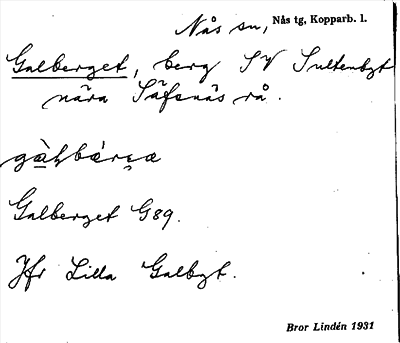 Nås sn, Nås tg, Kopparb. l.
Galberget, berg SV Sultenbgt
nära Säfsnäs rå.
Galberget G89.
Jfr Lilla Galbgt.
Bror Lindén 1931